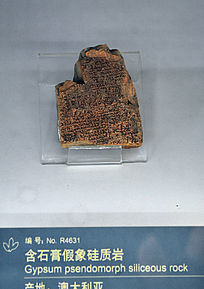 编 号: No. R4631
含石膏假象硅质岩
Gypsum psendomorph siliceous rock
产地: 澳大利亚